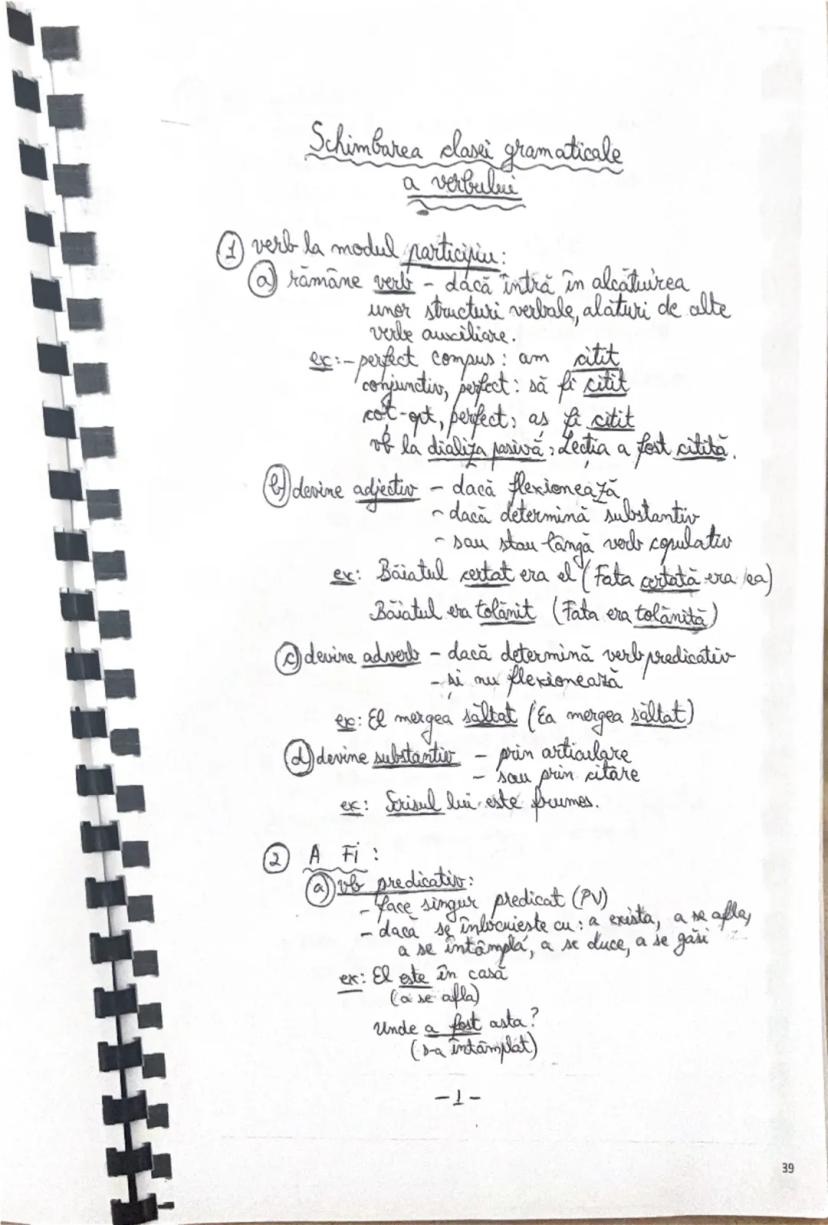 Schimbarea clasei gramaticale
a verbului
1 verb la modul participiu:
a) rămâne verb - dacă întră în alcătuirea
unor structuri verbale, alături de alte
verbe auxiliare.
ex: - perfect compus: am citit
conjunctiv, perfect: să fi citit
cot-opt, perfect: aș fi citit
vb la dializa pasivă: Lecția a fost citită.
b) devine adjectiv - dacă flexionează
- dacă determină substantiv
- sau stau lângă verb copulativ
ex: Băiatul certat era el (Fata certată era ea)
Băiatul era tolănit (Fata era tolănită)
c) devine adverb - dacă determină verb predicativ
- și nu flexionează
ex: El mergea săltat (Ea mergea săltat)
d) devine substantiv - prin articulare
- sau prin citare
ex: Scrisul lui este frumos.
2 A Fi:
a) vb predicativ:
- face singur predicat (PV)
- dacă se înlocuiește cu: a exista, a se afla,
a se întâmpla, a se duce, a se găsi
ex: El este în casă
(a se afla)
Unde a fost asta?
(s-a întâmplat)
-1-
39